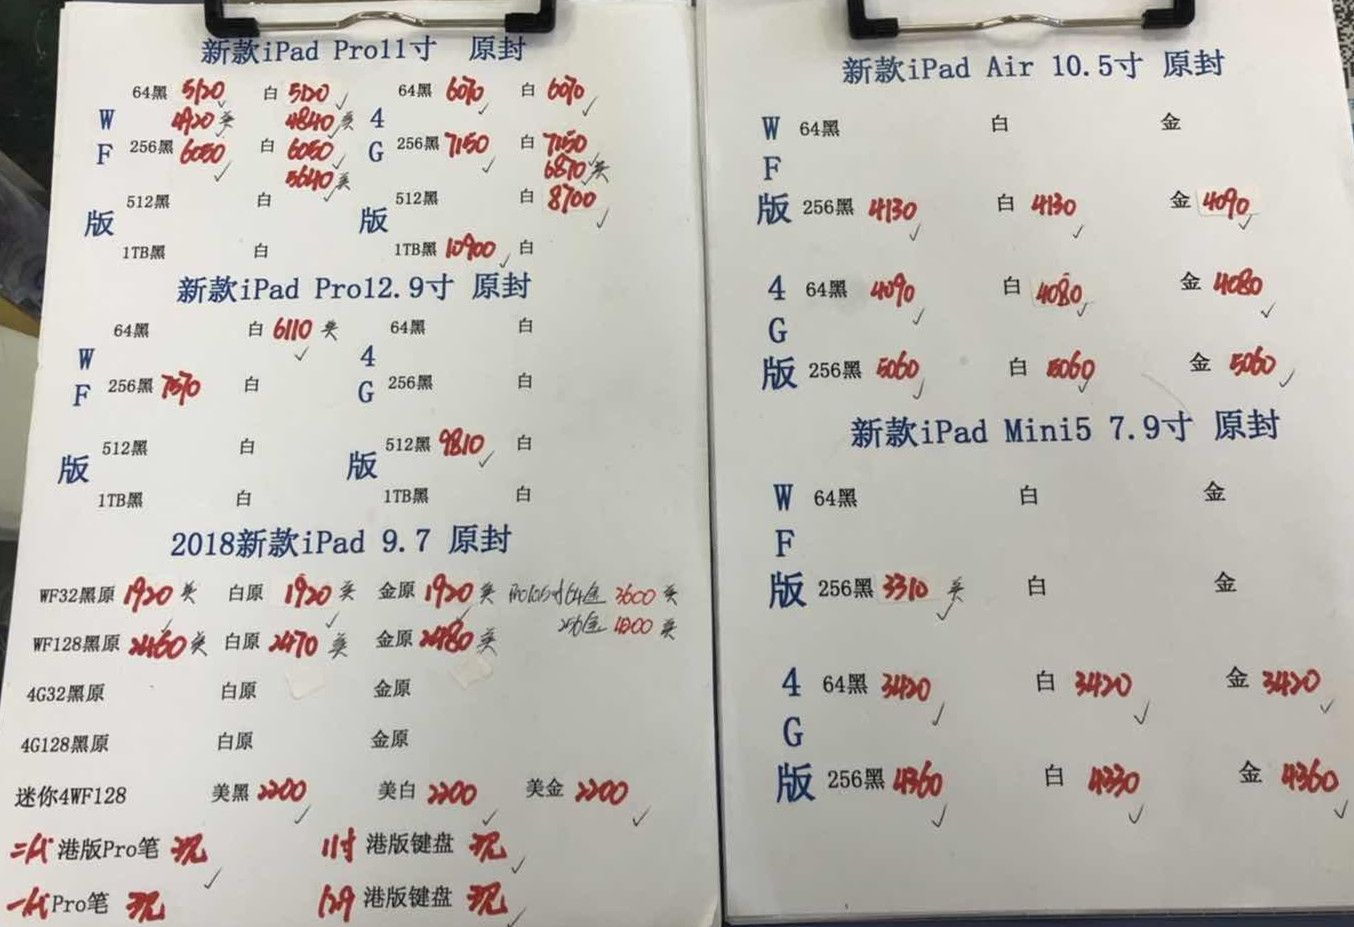 新款iPad Pro11寸 原封
64黑 5120 白 5120 64黑 6070 白 6070
W 4920美 4840美 4
F 256黑 6050 白 6050 G 256黑 7150 白 7150
5640美 6870美
版 512黑 白 版 512黑 白 8700
1TB黑 白 1TB黑 10900 白
新款iPad Pro12.9寸 原封
64黑 白 6110 美 64黑 白
W 4
F 256黑 7570 白 G 256黑 白
版 512黑 白 版 512黑 9810 白
1TB黑 白 1TB黑 白
2018新款iPad 9.7 原封
WF32黑原 1920 美 白原 1920 美 金原 1920 美 Pro10.5寸64金 3600 美
256金 4200 美
WF128黑原 2460 美 白原 2470 美 金原 2480 美
4G32黑原 白原 金原
4G128黑原 白原 金原
迷你4WF128 美黑 2200 美白 2200 美金 2200
二代 港版Pro笔 现 11寸 港版键盘 现
一代 Pro笔 现 12.9 港版键盘 现
新款iPad Air 10.5寸 原封
W 64黑 白 金
F
版 256黑 4130 白 4130 金 4090
4 64黑 4090 白 4080 金 4080
G
版 256黑 5060 白 5060 金 5060
新款iPad Mini5 7.9寸 原封
W 64黑 白 金
F
版 256黑 3310 美 白 金
4 64黑 3420 白 3420 金 3420
G
版 256黑 4360 白 4330 金 4360